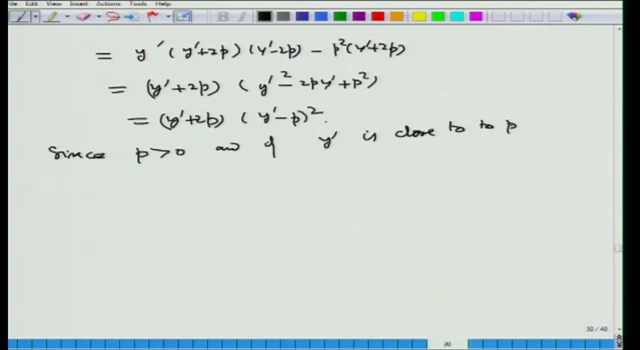 File View Insert Actions Tools Help
= y' (y'+2p) (y'-2p) - p²(y'+2p)
= (y'+2p) (y'² - 2py' + p²)
= (y'+2p) (y'-p)².
Since p>0 and if y' is close to to p
30 / 40
30